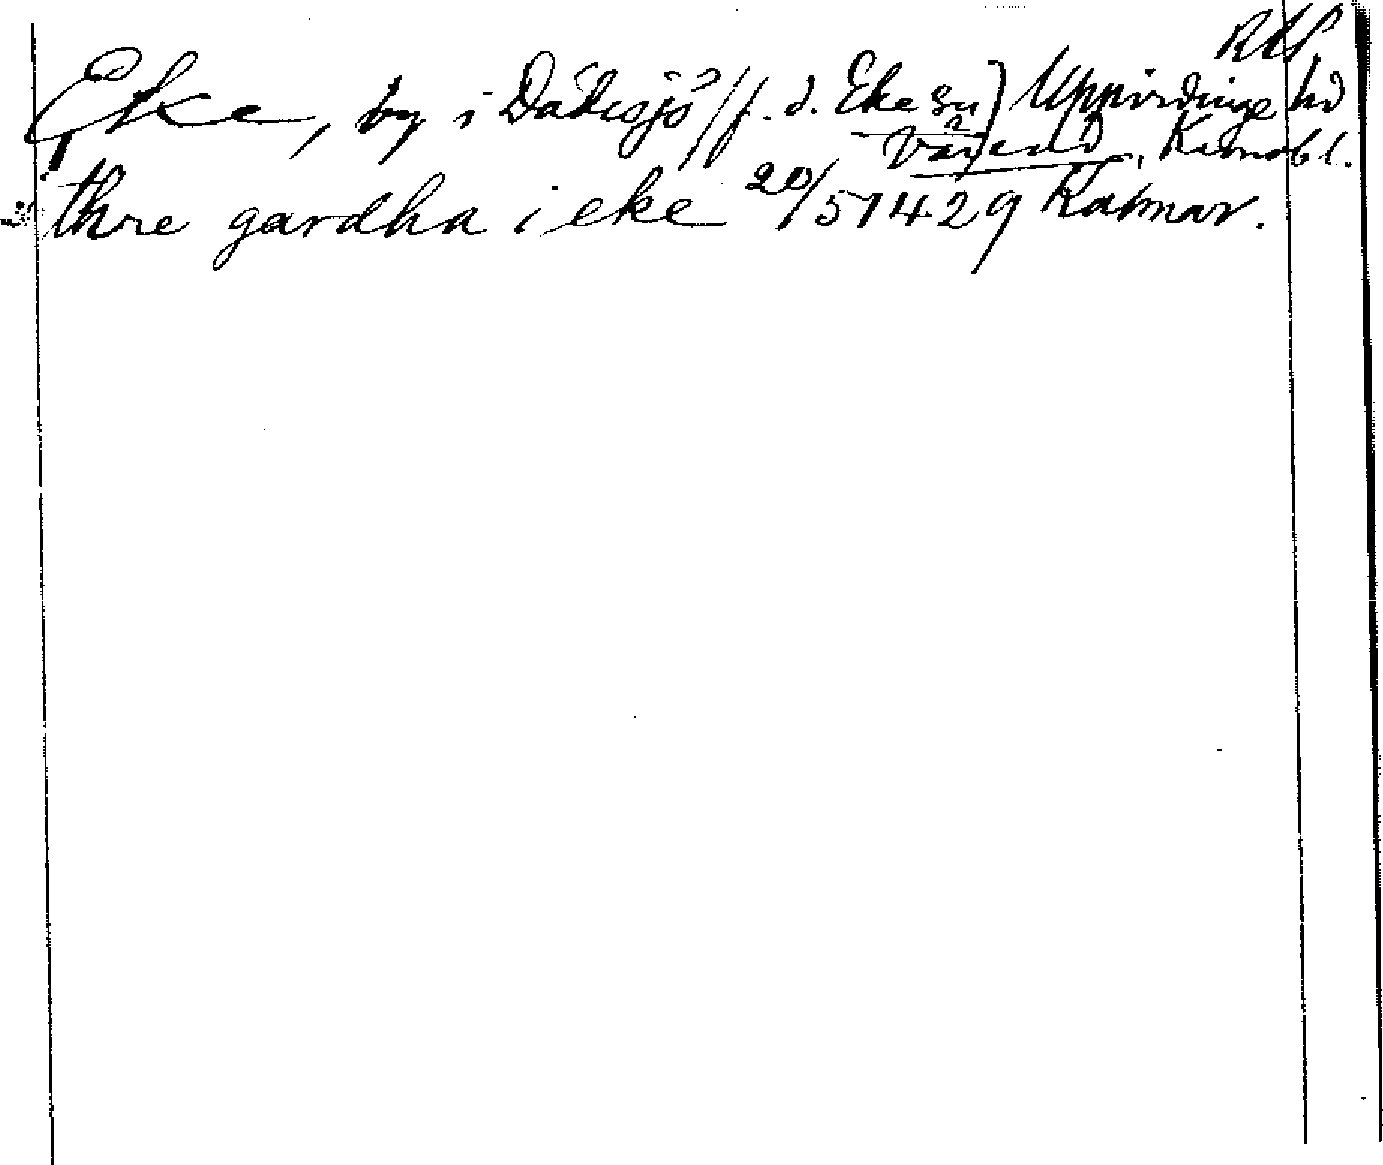 RAP
Eke, by i Dädesjö (f. d. Eke sn) Uppvidinge hd
Värend, Kronobl.
thre gardha i eke 20/5 1429 Kalmar.